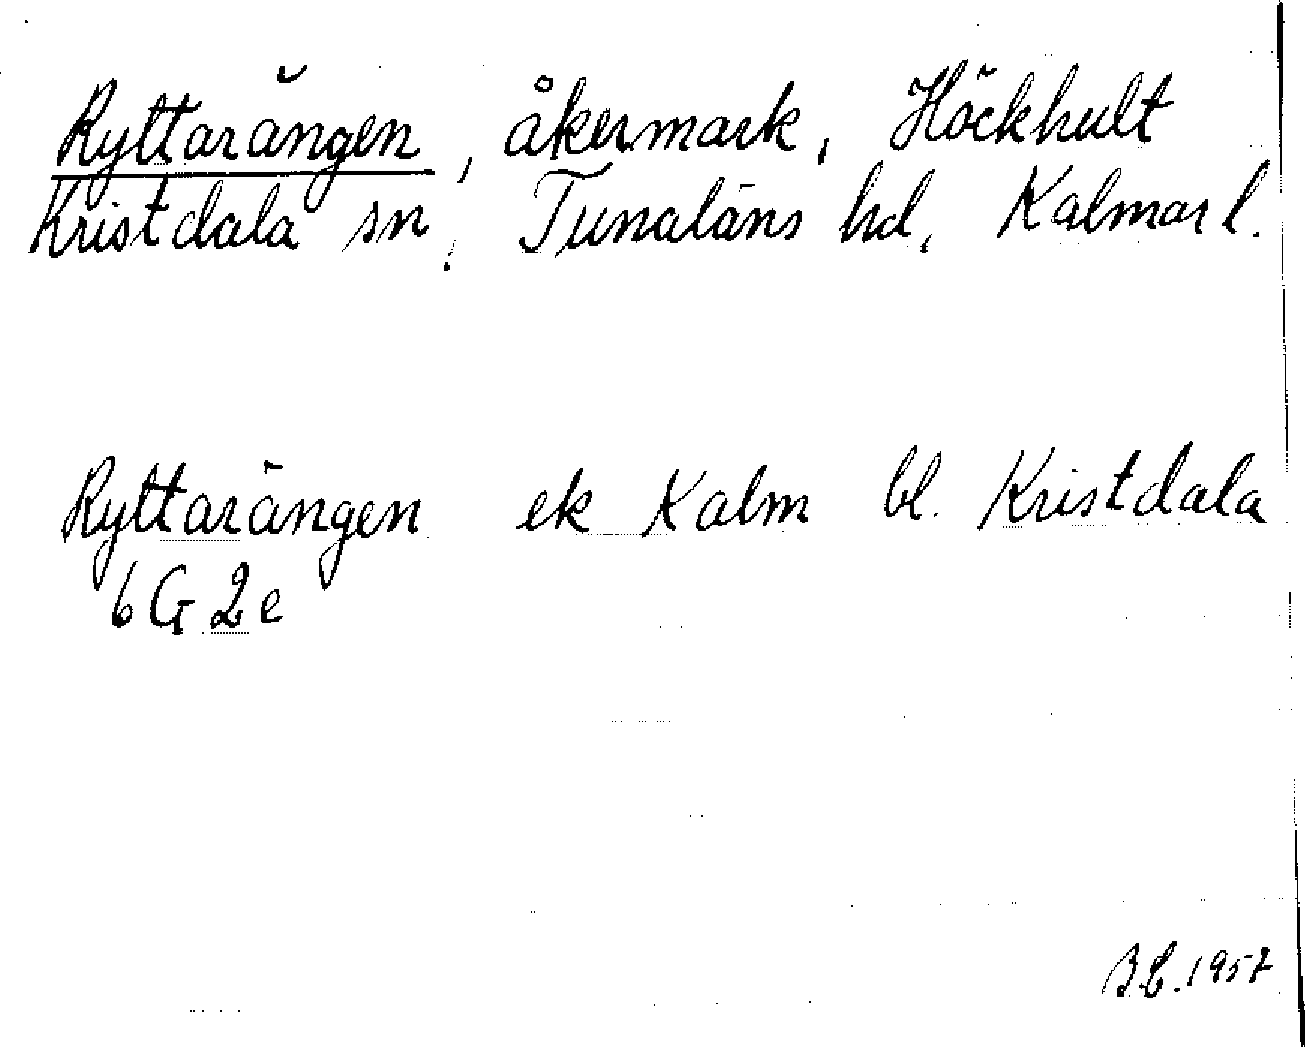 Ryttarängen, åkermark, Höckhult
Kristdala sn, Tunaläns hd, Kalmar l.
Ryttarängen ek Kalm bl. Kristdala
6 G 2 e
1957